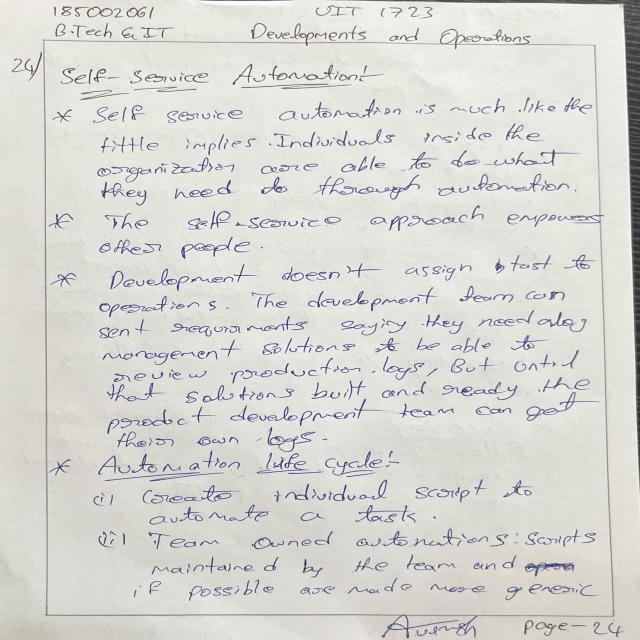 185002061 UIT 1723
B.Tech & IT Developments and Operations
24/ Self-Service Automation:-
* Self service automation is much like the
tittle implies. Individuals inside the
organization are able to do what
they need do thorough automation.
* The self-service approach empowers
other people.
* Development doesn't assign tast to
operations. The development team can
sent requirments saying they need alog
management solutions to be able to
review production logs, But until
that solutions built and ready the
product development team can get
their own logs.
* Automation life cycle:-
(i) Create individual script to
automate a task.
(ii) Team owned automations: scripts
maintained by the team and
if possible are made more generic
page-24